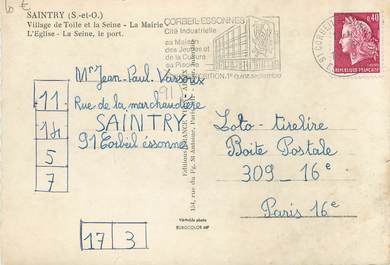 6 €
SAINTRY (S.-et-O.)
Village de Toile et la Seine - La Mairie
L'Eglise - La Seine, le port.
CORBEIL-ESSONNES
Cité Industrielle
sa Maison
des Jeunes et
de la Culture
sa Piscine
EXPOSITION. 1e quinz. septembre
0,40
REPUBLIQUE FRANCAISE
Mr Jean-Paul
Rue de la
SAINTRY
91 Corbeil éssonnes
91
11
14
5
7
17 3
Loto-tirelire
Boite Postale
309-16e
Paris 16e
Véritable photo
EUROCOLOR MP